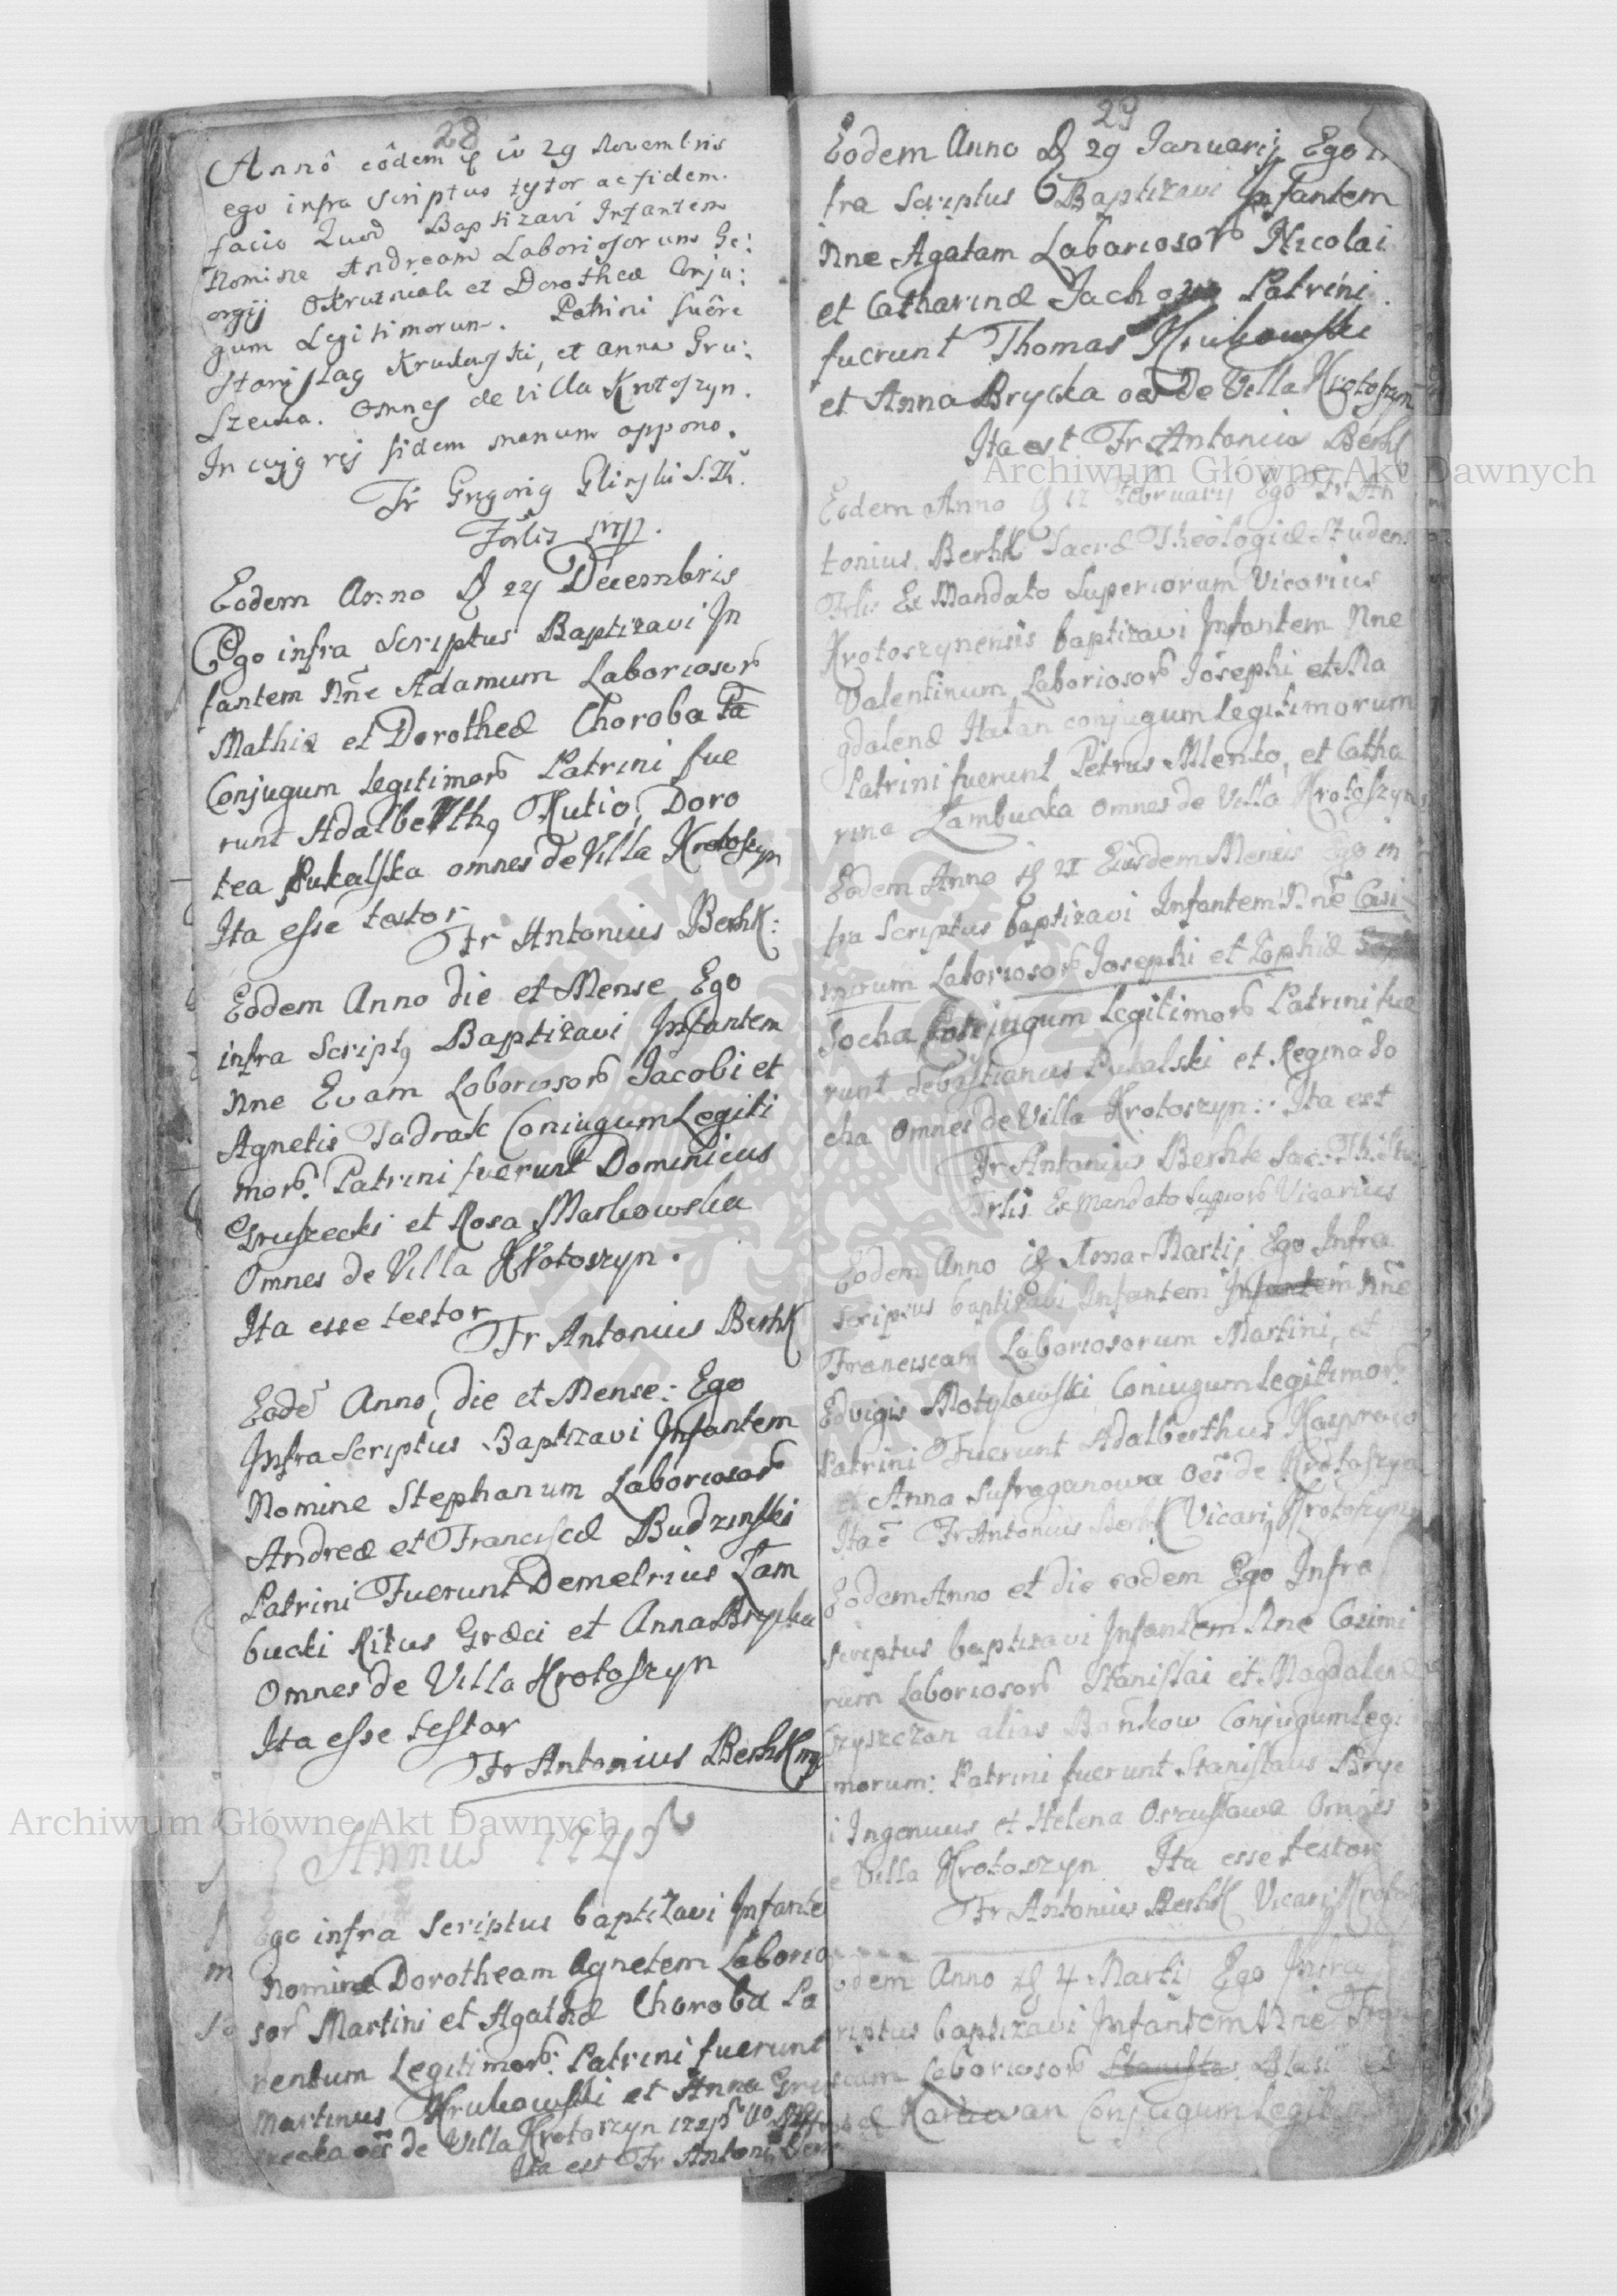 28
Annô eôdem 29 Novembris
ego infra scriptus testor ac fidem
facio Quod Baptizavi Infantem
Nomine Andream Laboriosorum Ge:
orgij et Dorotheæ Conju:
gum Legitimorum. Patrini fuêre
Stanislaq Krukowski, et Anna Gru:
szecka. Omnes de villa Krotoszyn.
In cujq rej fidem manum appono.
Fr Gregoriq Gliński S. Th.
mpp.
Eodem Anno 24 Decembris
Ego infra Scriptus Baptizavi In
fantem Nñe Adamum Laboriosor
Mathiæ et Dorotheæ Choroba
Conjugum legitimor Patrini fue
runt Adalberthq Kutio, Doro
tea Pukalska omnes de Villa Krotoszyn
Ita esse testor
Fr Antonius Berhk:
Eodem Anno die et Mense Ego
infra Scriptq Baptizavi Infantem
Nne Evam Laboriosor Jacobi et
Agnetis Sadrak Coniugum Legiti
mor. Patrini fuerunt Dominicus
Gruszecki et Rosa Markowska
Omnes de Villa Krotoszyn.
Ita esse testor
Fr Antonius Berhk
Eodē Anno, die et Mense: Ego
Infra Scriptus Baptizavi Infantem
Nomine Stephanum Laboriosor
Andreæ et Franciscæ Budzinski
Patrini Fuerunt Demetrius Zam
bucki Ritus Græci et Anna Brycka
Omnes de Villa Krotoszyn
Ita esse testor
Fr Antonius Berhk mp
Annus 1745
Ego infra Scriptus baptizavi Infante
Nomine Dorotheam Agnetem Laborio
sor Martini et Agathæ Choroba Pa
rentum Legitimor. Patrini fuerunt
Martinus Krukowski et Anna Gru
szecka oēs de Villa Krotoszyn
Ita est Fr Antoni
29
Eodem Anno 29 Januarij Ego in
fra Scriptus Baptizavi Infantem
Nne Agatam Laborioso Nicolai
et Catharinæ Patrini.
fuerunt Thomas Krukowski
et Anna Brycka oēs De Villa Krotoszyn
Ita est Fr Antonius Berhk
Eodem Anno 12 Februarij Ego Fr An
tonius Berhk Sacræ Theologiæ Studens
Frlis Ex Mandato Superiorum Vicarius
Krotoszynensis baptizavi Infantem Nne
Valentinum Laboriosor Josephi et Ma
gdalenæ conjugum legitimorum
Patrini fuerunt Petrus et Catha
rina Zambucka omnes de Villa Krotoszyn
Eodem Anno 21 Eiusdem Mensis Ego in
fra Scriptus baptizavi Infantem Nñe Casi
mirum Laboriosor Josephi et Zophiæ
Socha Conjugum legitimor Patrini fue
runt Sebastianus Pukalski et Regina So
cha Omnes de Villa Krotoszyn: Ita est
Fr Antonius Berhk Sac: Th: Stu
Frlis Ex Mandato Superior Vicarius
Eodem Anno Martij Ego Infra
scriptus baptizavi Infantem Infantem Nñe
Franciscam Laboriosorum Martini, et
Edvigis Motylowski Coniugum legitimor
Patrini Fuerunt Adalberthus Kasprowo
et Anna Sufraganowa Oēs de Krotoszyn
Ita ē Fr Antonius Berhk Vicariq Krotoszyn
Eodem Anno et die eodem Ego Infra
scriptus baptizavi Infantem Nne Casimi
rum Laboriosor Stanislai et Magdalenæ
alias Bankow Conjugum legi
morum: Patrini fuerunt Stanislaus Bryc
i Ingenuus et Helena Omnes
e Villa Krotoszyn Ita esse testor
Fr Antonius Berhk Vicariq
odem Anno 4 Martij Ego Infra
riptus baptizavi Infantem Nne Fran
ciscam Laboriosor Blasii et
Conjugum legitim
Archiwum Główne Akt Dawnych
Archiwum Główne Akt Dawnych